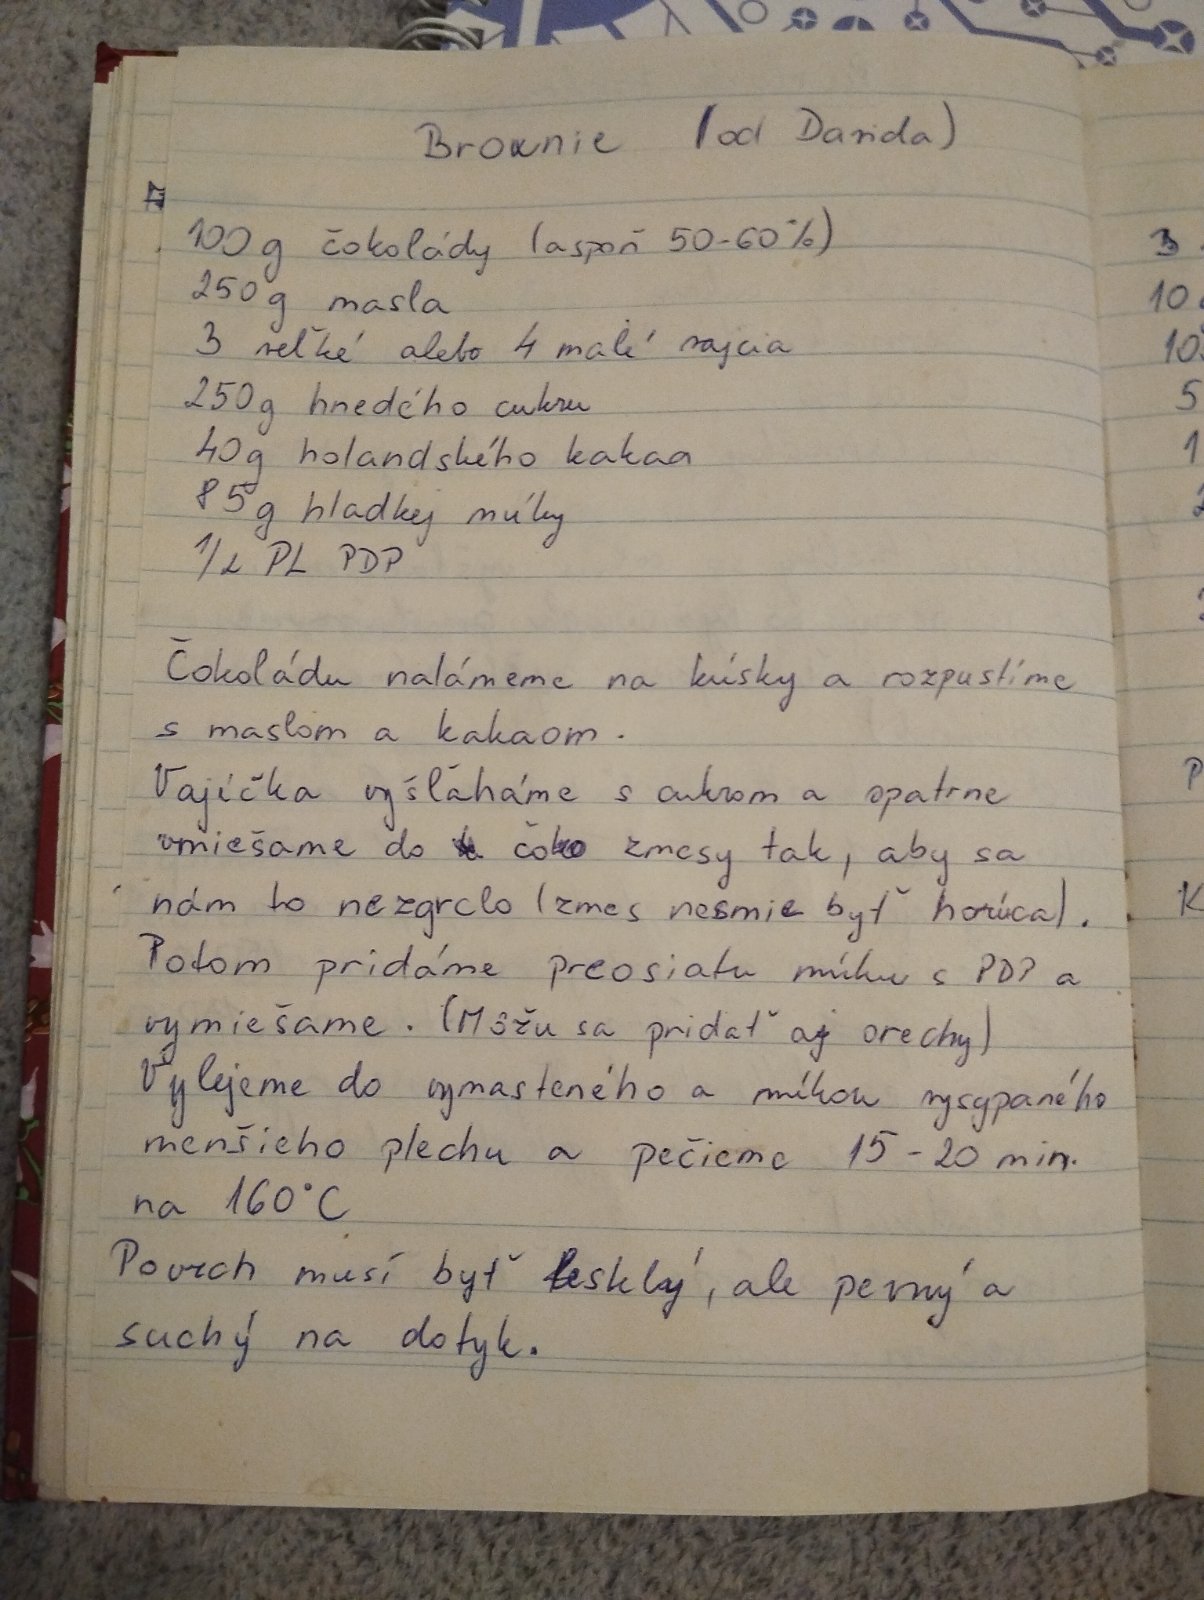 Brownie (od Davida)
100g čokolády (aspoň 50-60%)
250g masla
3 veľké alebo 4 malé vajcia
250g hnedého cukru
40g holandského kakaa
85g hladkej múky
1/2 PL PDP
Čokoládu nalámeme na kúsky a rozpustíme
s maslom a kakaom.
Vajíčka vyšľaháme s cukrom a opatrne
vmiešame do čoko zmesy tak, aby sa
nám to nezgrclo (zmes nesmie byť horúca).
Potom pridáme preosiatu múku s PDP a
vymiešame. (Môžu sa pridať aj orechy)
Vylejeme do vymasteného a múkou vysypaného
menšieho plechu a pečieme 15-20 min.
na 160°C
Povrch musí byť lesklý, ale pevný a
suchý na dotyk.
3
10
10
5
1
P
K